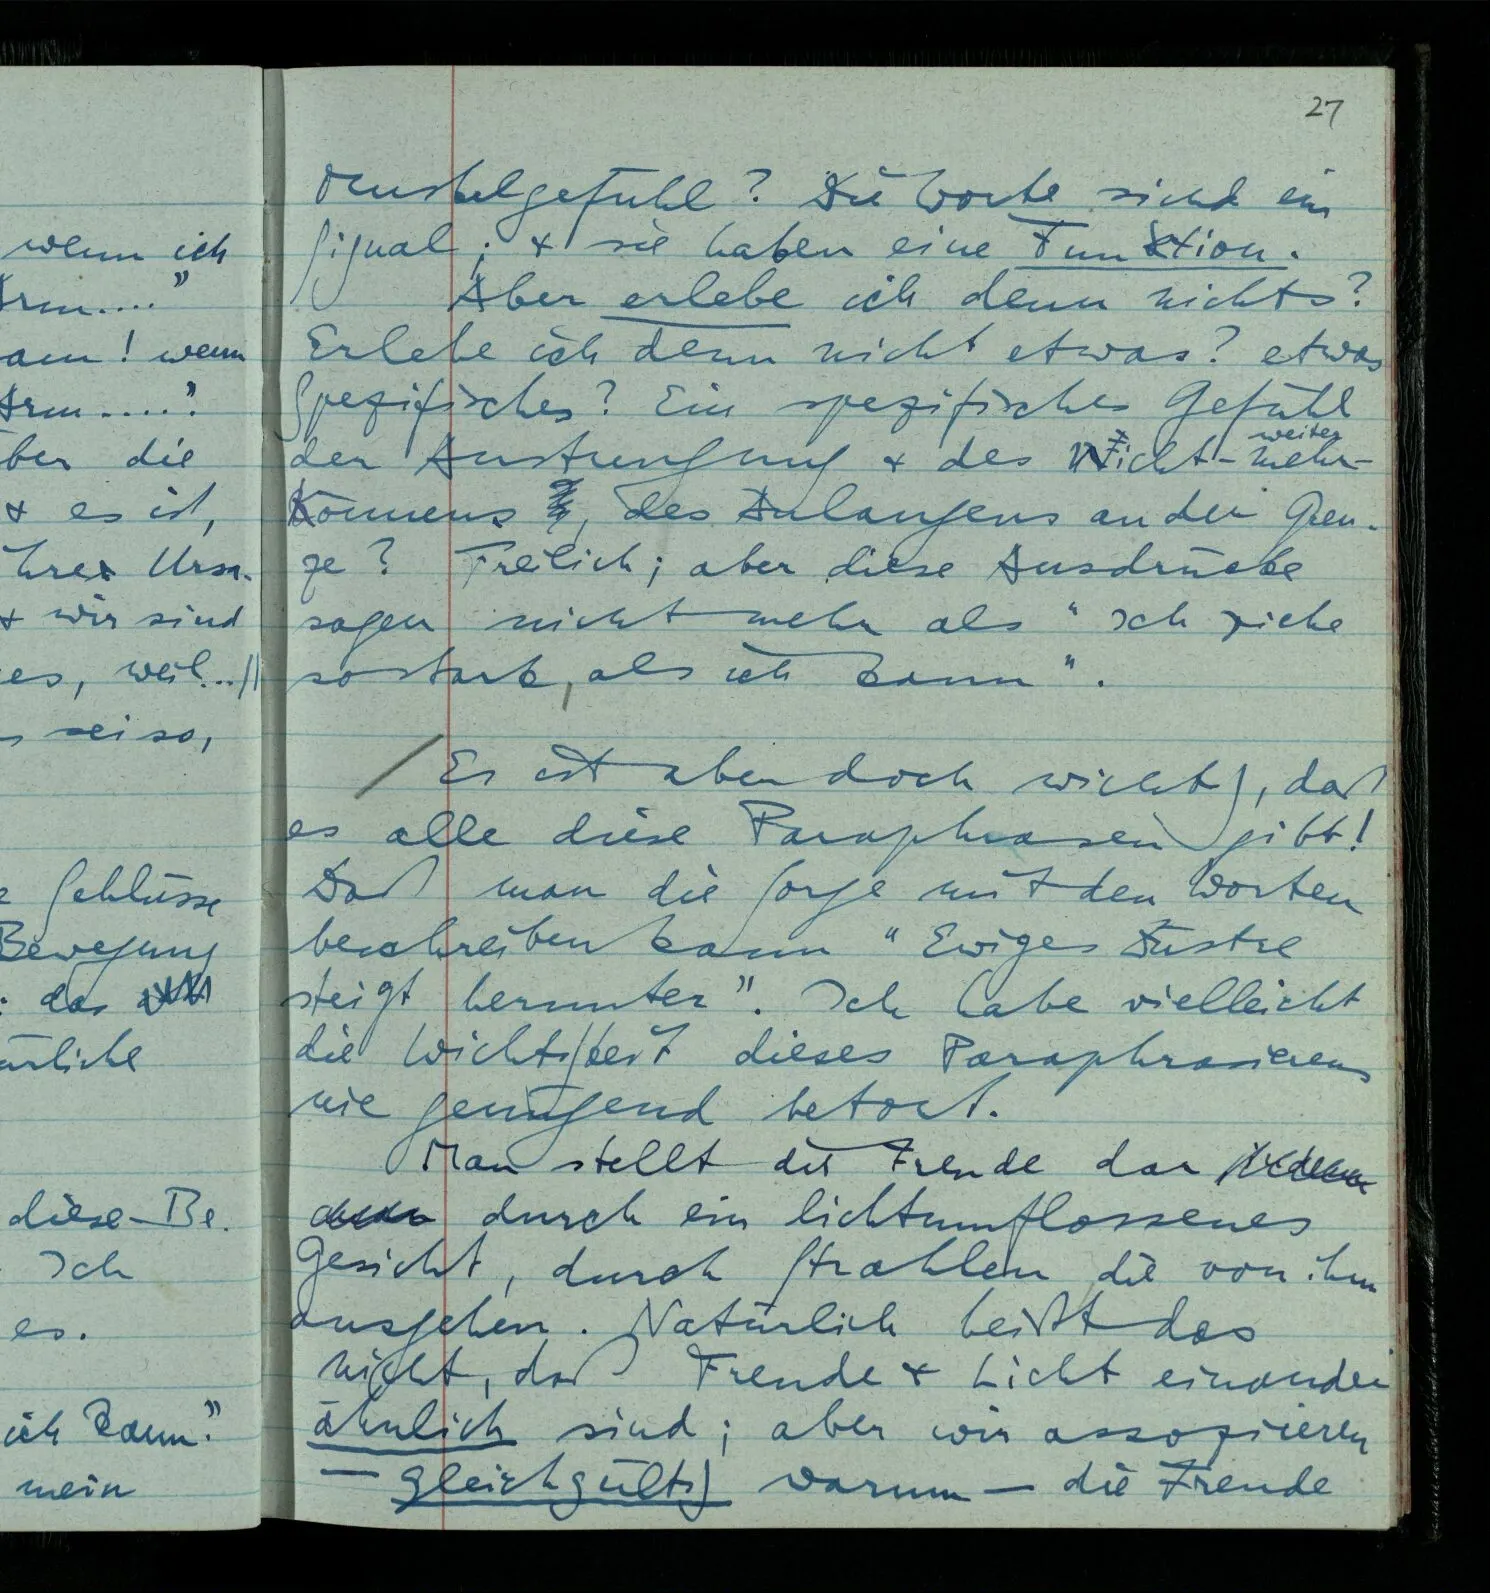 wenn ich
Arm...."
wenn
Arm....".
aber die
& es ist,
ihrer Ursa-
& wir sind
es, weil...//
sei so,
Schlüsse
Bewegung
: das
diese Be-
Ich
es.
ich kann."
mein
27
Muskelgefühl? Die Worte sind ein
Signal; & sie haben eine Funktion.
Aber erlebe ich denn nichts?
Erlebe ich denn nicht etwas? etwas
Spezifisches? Ein spezifisches Gefühl
weiter
der Anstrengung & des Nicht-mehr-
Könnens, des Anlangens an der Gren-
ze? Freilich; aber diese Ausdrücke
sagen nicht mehr als "Ich ziehe
so stark, als ich kann".
/ Es ist aber doch wichtig, daß
es alle diese Paraphrasen gibt!
Daß man die Sorge mit den Worten
beschreiben kann "Ewiges Düstre
steigt herunter". Ich habe vielleicht
die Wichtigkeit dieses Paraphrasierens
nie genügend betont.
Man stellt die Freude dar
durch ein lichtumflossenes
Gesicht, durch Strahlen die von ihm
ausgehen. Natürlich heißt das
nicht, daß Freude & Licht einander
ähnlich sind; aber wir assoziieren
— gleichgültig warum — die Freude